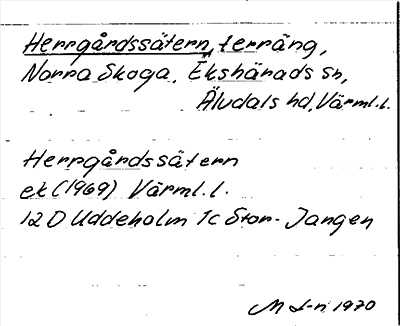 Herrgårdssätern, terräng,
Norra Skoga, Ekshärads sn,
Älvdals hd, Värml.l.
Herrgårdssätern
ek (1969) Värml.l.
12 D Uddeholm 1c Stor-Jangen
M L-n 1970